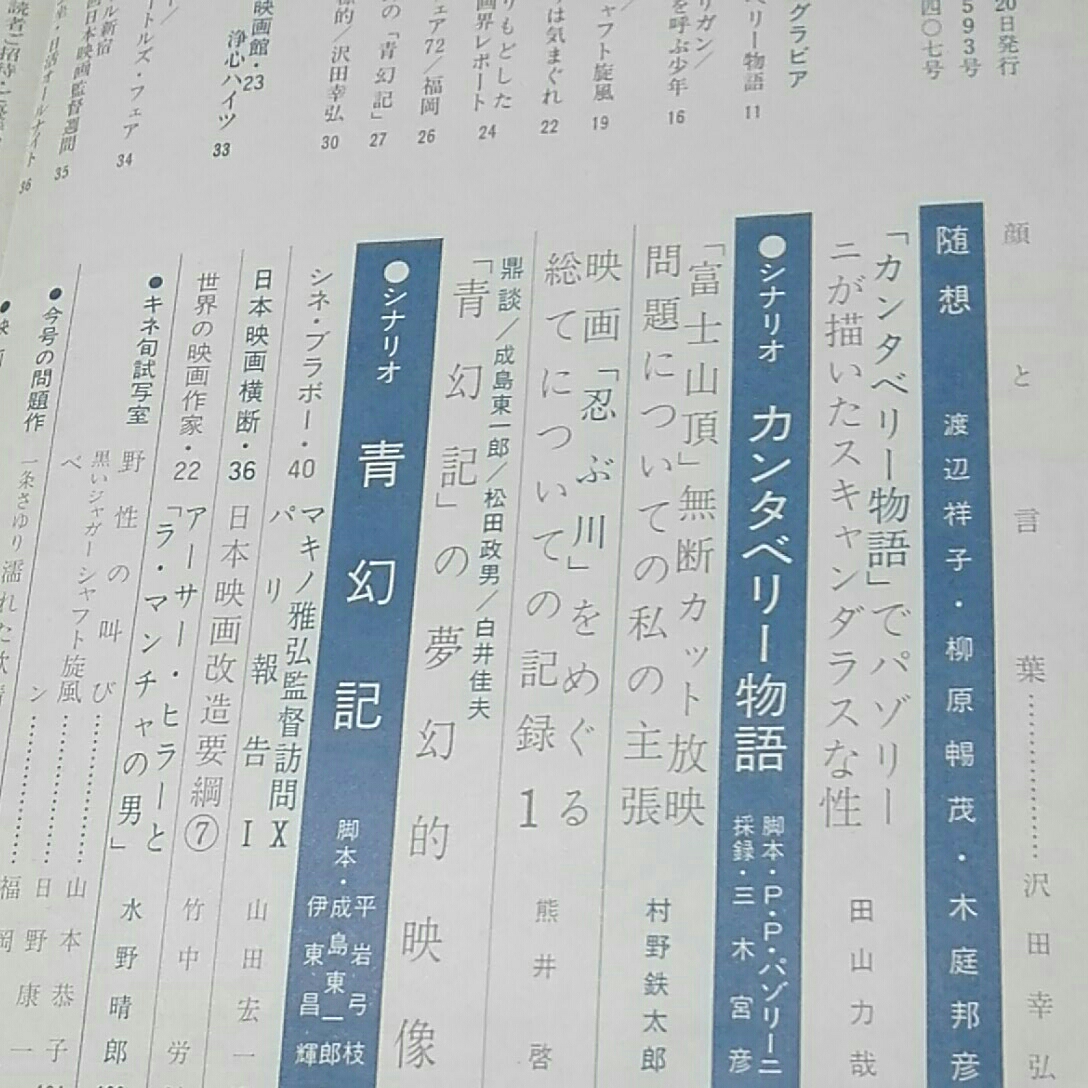 20日発行
593号
四〇七号
グラビア
ベリー物語 11
リガン/
を呼ぶ少年 16
ャフト旋風 19
は気まぐれ 22
りもどした
画界レポート 24
ェア72/福岡 26
の「青幻記」 27
標的/沢田幸弘 30
映画館・23
浄心ハイツ 33
ートルズ・フェア 34
ル新宿
日本映画監督週間 35
弟・日活オールナイト 36
読者ご招待
顔と言葉…………沢田幸弘
随想 渡辺祥子・柳原暢茂・木庭邦彦
「カンタベリー物語」でパゾリー
ニが描いたスキャンダラスな性 田山力哉
●シナリオ カンタベリー物語 脚本・P・P・パゾリーニ
採録・三木宮彦
「富士山頂」無断カット放映
問題についての私の主張 村野鉄太郎
映画「忍ぶ川」をめぐる
総てについての記録1 熊井啓
鼎談/成島東一郎/松田政男/白井佳夫
「青幻記」の夢幻的映像
●シナリオ 青幻記 脚本・平岩弓枝
成島東一郎
伊東昌輝
シネ・ブラボー・40 マキノ雅弘監督訪問X
パリ報告I 山田宏一
日本映画横断・36 日本映画改造要綱⑦ 竹中労
世界の映画作家・22 アーサー・ヒラーと
「ラ・マンチャの男」 水野晴郎
●キネ旬試写室 野性の叫び…………山本恭子
黒いジャガーシャフト旋風…………日野康一
ベン…………福岡
●今号の問題作 一条さゆり濡れた欲情